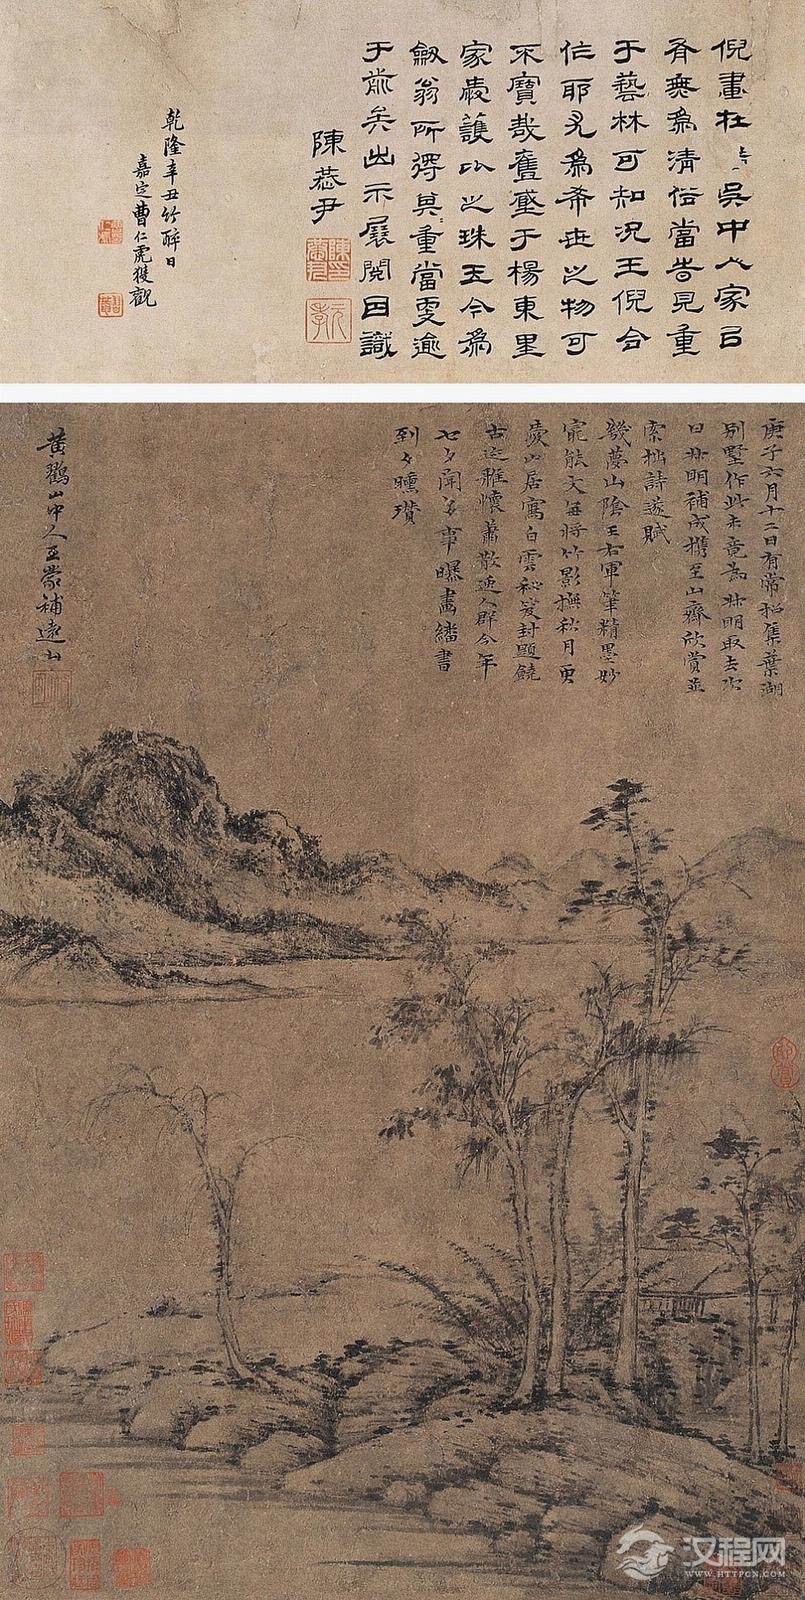 倪畫在吳中人家以
有無為清俗當旹見重
于藝林可知況王倪合
作耶尤為希世之物可
不寶哉舊藏于楊東里
家裝護比之珠玉今為
劒翁所得其重當更逾
于前矣出示展閱因識
陳恭尹
元孝
乾隆辛丑竹醉日
嘉定曹仁虎獲觀
庚子六月十二日有常招集葉湖
別墅作此未竟為叔明取去次
日叔明補成攜至山齋欣賞並
索拙詩遂賦
幾夢山陰王右軍筆精墨妙
宛能文每將竹影撫秋月更
愛山居寫白雲秘笈封題饒
古迹雅懷蕭散逸人群今年
七夕聞多事曝畫繙書
到夕曛瓚
黃鶴山中人王蒙補遠山
汉程网
WWW.HTTPCN.COM